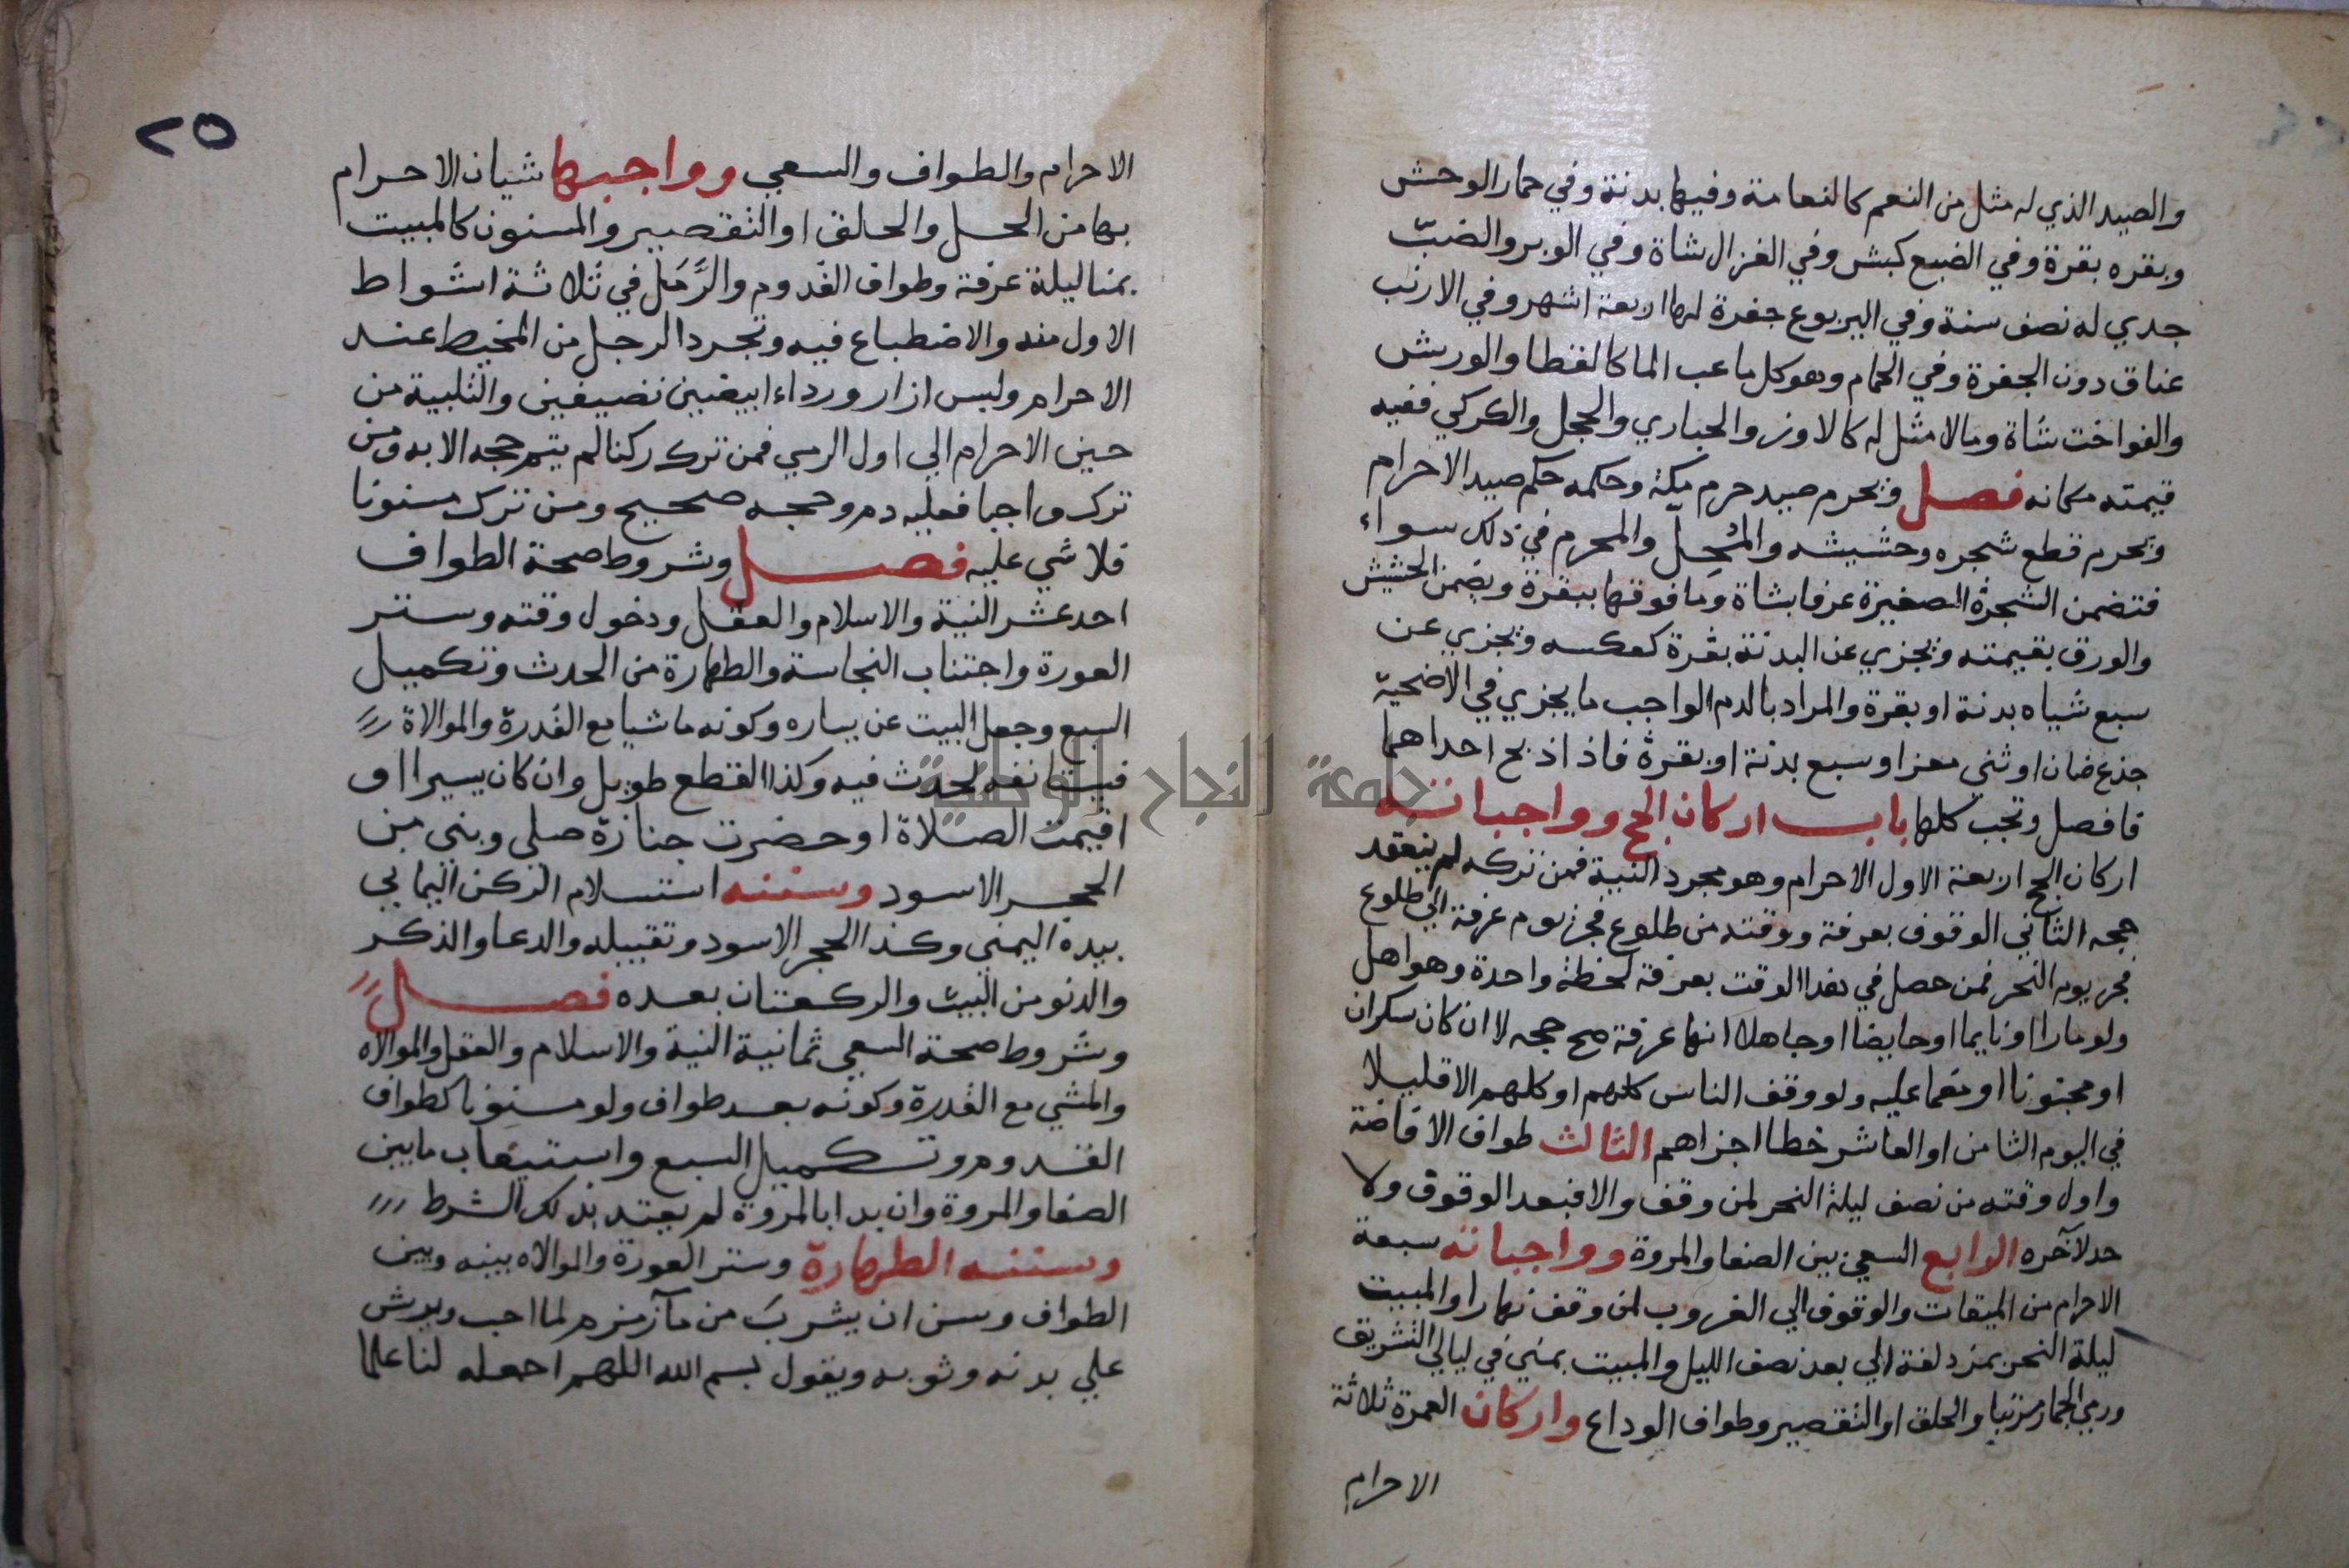 والصيد الذي له مثل من النعم كالنعامة وفيها بدنة وفي حمار الوحش
وبقره بقرة وفي الضبع كبش وفي الغزال شاة وفي الوبر والضبّ
جدي له نصف سنة وفي اليربوع جفرة لها اربعة اشهر وفي الارنب
عناق دون الجفرة وفي الحمام وهو كل ما عب الما كالقطا والورش
والفواخت شاة وما لا مثل له كالاوز والحباري والحجل والكركي ففيه
قيمته مكانه فصل ويحرم صيد حرم مكة وحكمه حكم صيد الاحرام
ويحرم قطع شجره وحشيشه والمُحِلّ والمحرم في ذلك سواء
فتضمن الشجرة الصغيرة عرفا بشاة وما فوقها ببقرة ويضمن الحشيش
والورق بقيمته ويجزي عن البدنة بقرة كعكسه ويجزي عن
سبع شياه بدنة او بقرة والمراد بالدم الواجب ما يجزي في الاضحية
جذع ضان او ثني معز او سبع بدنة او بقرة فاذا ذبح احداهما
فافضل وتجب كلها باب اركان الحج وواجباته
اركان الحج اربعة الاول الاحرام وهو مجرد النية فمن تركه لم ينعقد
حجه الثاني الوقوف بعرفة ووقته من طلوع فجر يوم عرفة الي طلوع
فجر يوم النحر فمن حصل في هذا الوقت بعرفة لحظة واحدة وهو اهل
ولو مارا او نايما او حايضا او جاهلا انها عرفة صح حجه لا ان كان سكران
او مجنونا او مغما عليه ولو وقف الناس كلهم او كلهم الا قليلا
في اليوم الثامن او العاشر خطا اجزاهم الثالث طواف الافاضة
واول وقته من نصف ليلة النحر لمن وقف والا فبعد الوقوف ولا
حد لآخره الرابع السعي بين الصفا والمروة وواجباته سبعة
الاحرام من الميقات والوقوف الي الغروب لمن وقف نهارا والمبيت
ليلة النحر بمزدلفة الي بعد نصف الليل والمبيت بمني في ليالي التشريق
ورمي الجمار مرتبا والحلق او التقصير وطواف الوداع واركان العمرة ثلاثة
الاحرام
٢٥
الاحرام والطواف والسعي وواجبها شيان الاحرام
بها من الحل والحلق او التقصير والمسنون كالمبيت
بمنا ليلة عرفة وطواف القدوم والرَّمَل في ثلاثة اشواط
الاول منه والاضطباع فيه وتجرد الرجل من المخيط عند
الاحرام ولبس ازار ورداء ابيضين نضيفين والتلبية من
حين الاحرام الي اول الرمي فمن ترك ركنا لم يتم حجه الا به ومن
ترك واجبا فعليه دم وحجه صحيح ومن ترك مسنونا
فلا شي عليه فصل وشروط صحة الطواف
احد عشر النية والاسلام والعقل ودخول وقته وستر
العورة واجتناب النجاسة والطهارة من الحدث وتكميل
السبع وجعل البيت عن يساره وكونه ماشيا مع القدرة والموالاة
فيستانفه لحدث فيه وكذا القطع طويل وان كان يسيرا او
اقيمت الصلاة او حضرت جنازة صلي وبني من
الحجر الاسود وسننه استلام الركن اليماني
بيده اليمني وكذا الحجر الاسود وتقبيله والدعا والذكر
والدنو من البيت والركعتان بعده فصل
وشروط صحة السعي ثمانية النية والاسلام والعقل والموالاه
والمشي مع القدرة وكونه بعد طواف ولو مسنونا كطواف
القدوم وتكميل السبع واستيعاب ما بين
الصفا والمروة وان بدا بالمروة لم يعتد بذلك الشرط
وسننه الطهارة وستر العورة والموالاه بينه وبين
الطواف وسن ان يشربَ من مآ زمزم لما احب ويرش
علي بدنه وثوبه ويقول بسم الله اللهم اجعله لنا علما
جامعة النجاح الوطنية